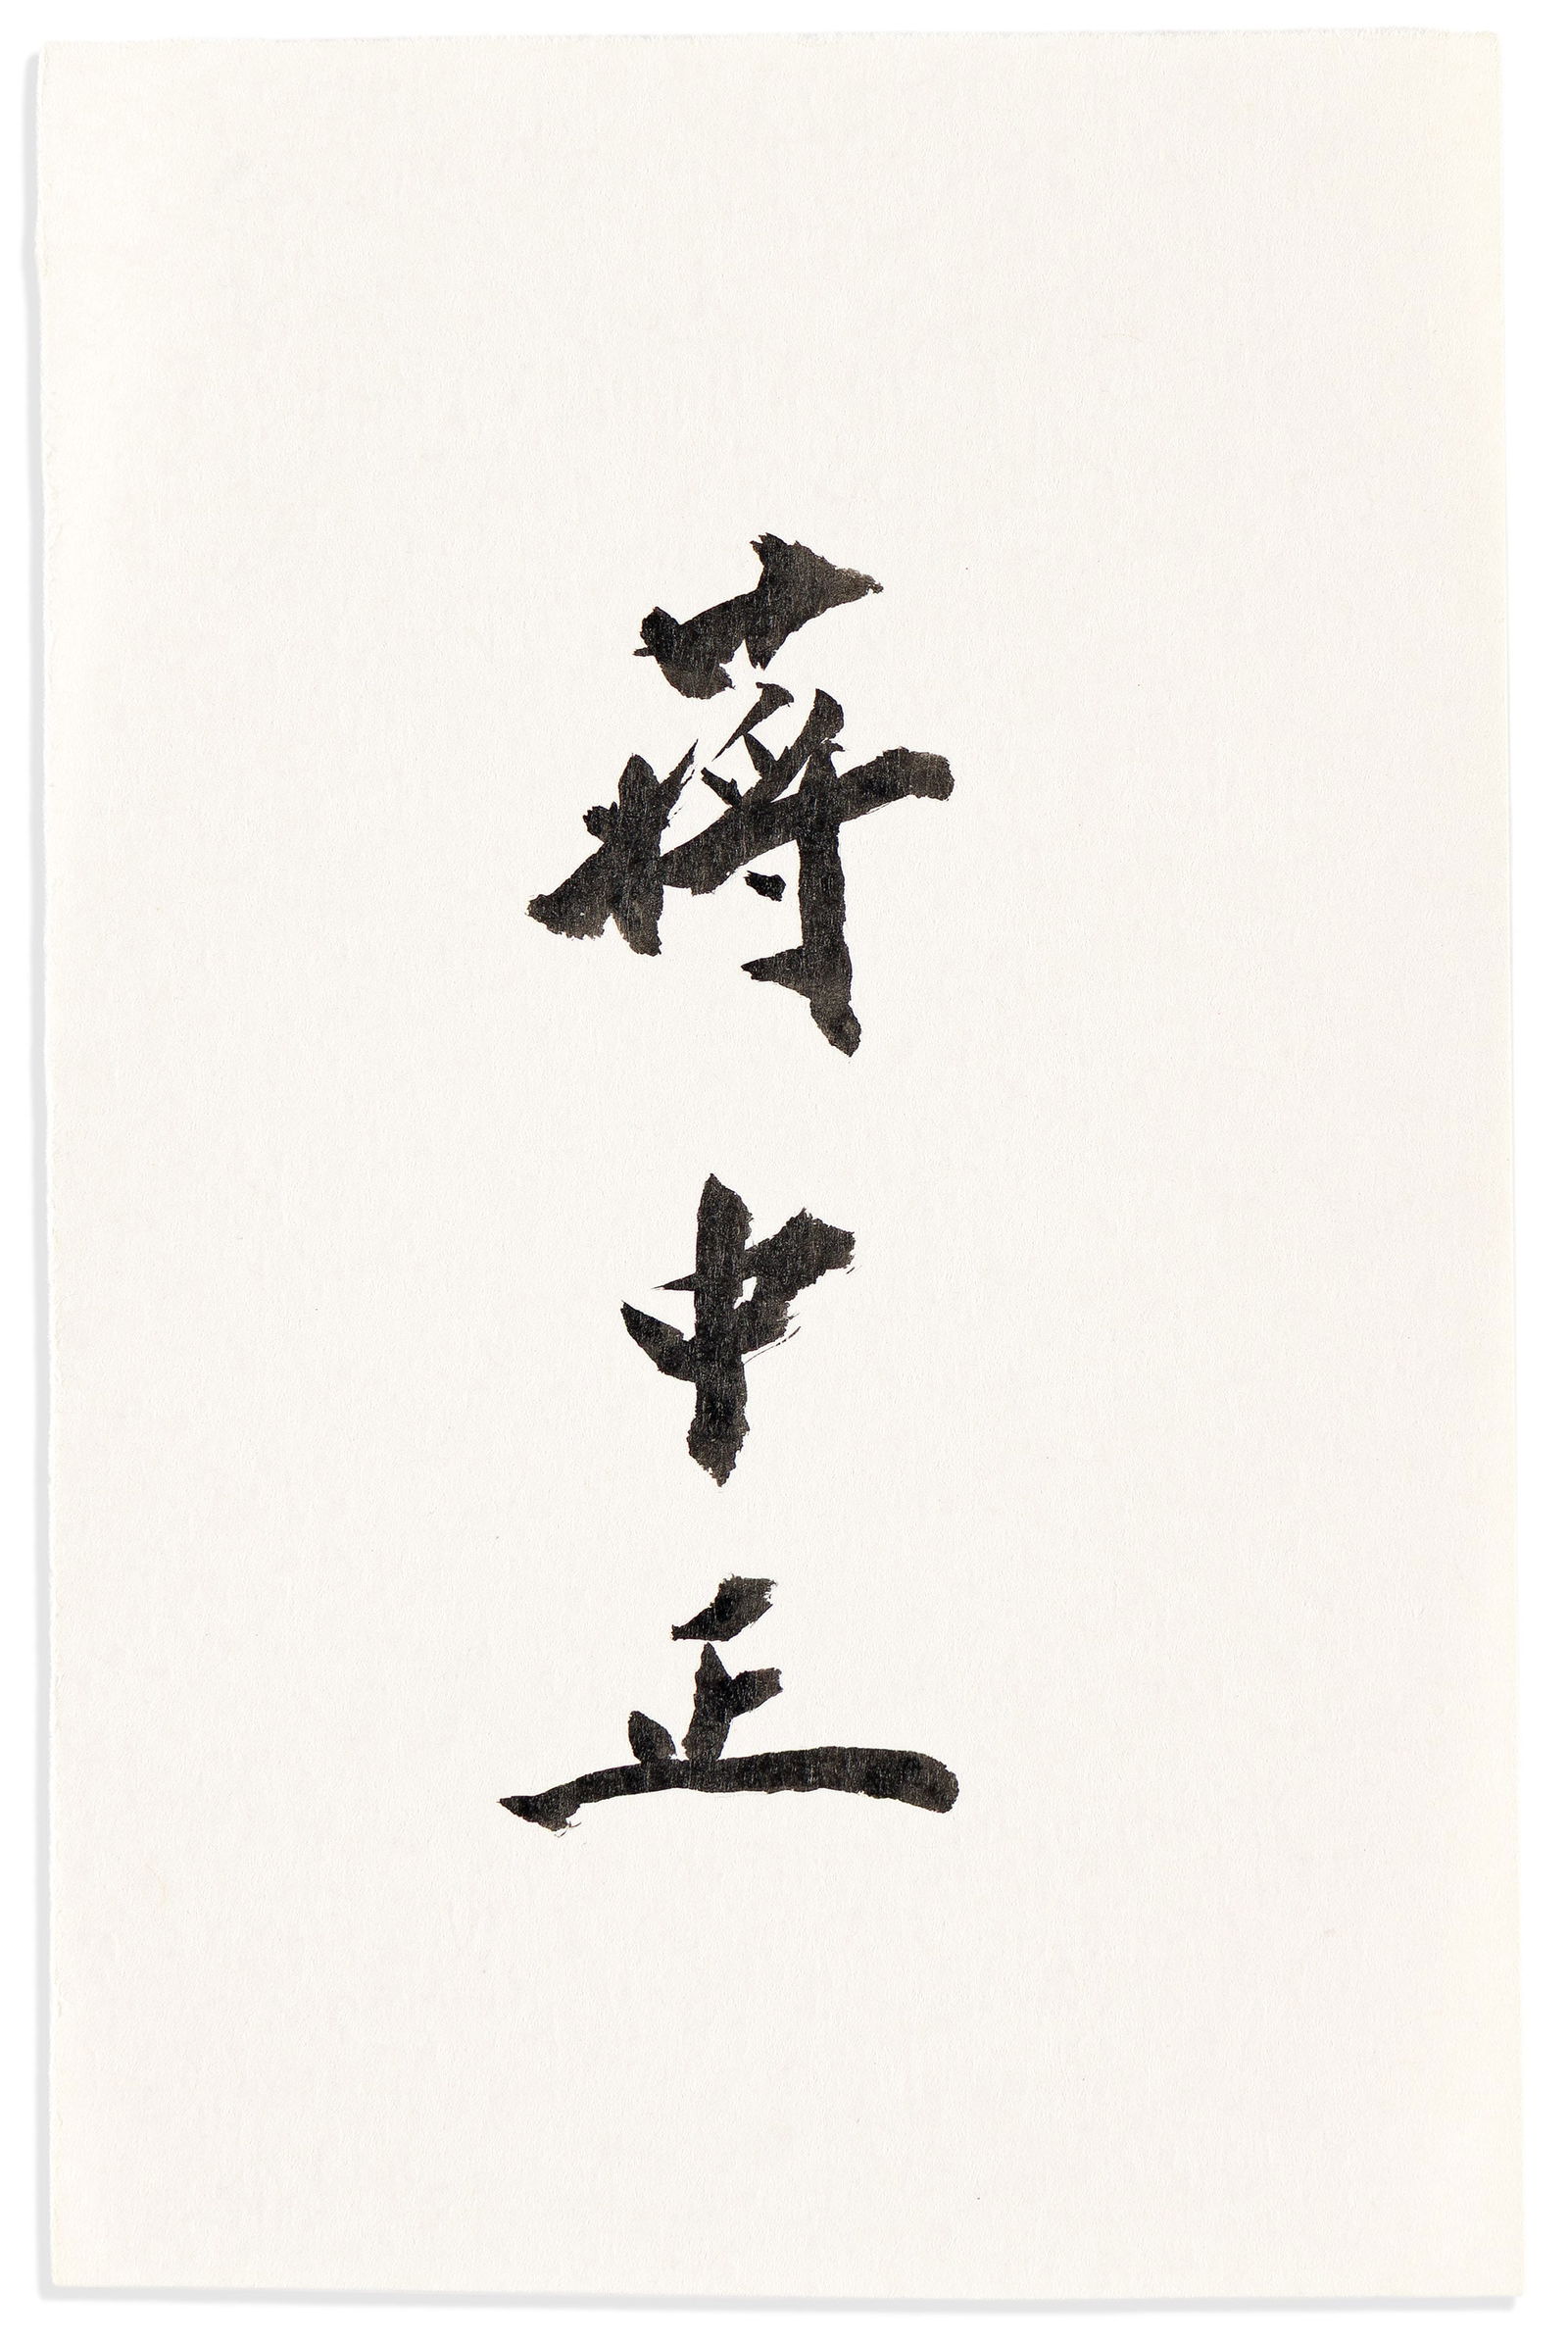 蔣中正